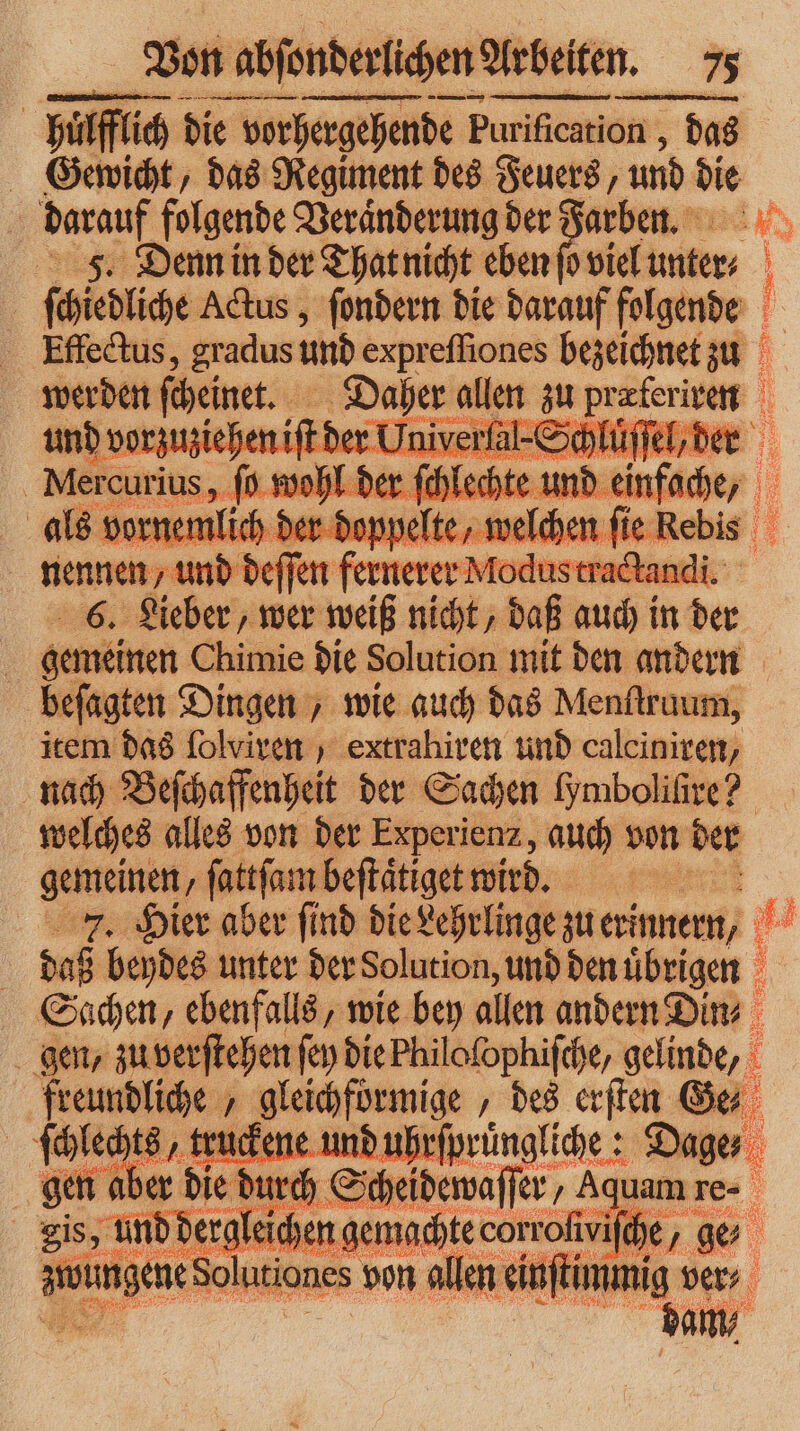 Von abſonderlichen Arbeiten. 75
huͤlfflich die vorhergehende Purification, das
Gewicht / das Regiment des Feuers / und die
darauf folgende Veraͤnderung der Farben.
5. Denn in der That nicht eben ſo viel unter⸗
ſchiedliche Actus, ſondern die darauf folgende
Effectus, gradus und expreſſiones bezeichnet zu
werden ſcheinet. Daher allen zu præferiren
und vorzuziehen iſt der Univerſal-Schluͤſſel / der
Mercurius, ſo wohl der ſchlechte und einfache /
als vornemlich der doppelte / welchen ſie Rebis
nennen / und deſſen fernerer Modus tractandi.
6. Lieber / wer weiß nicht / daß auch in der
gemeinen Chimie die Solution mit den andern
beſagten Dingen / wie auch das Menſtruum,
item das ſolviren / extrahiren und calciniren /
nach Beſchaffenheit der Sachen ſymboliſire?
welches alles von der Experienz, auch von der
gemeinen / ſattſam beſtaͤtiget wird.
7. Hier aber ſind die Lehrlinge zu erinnern /
daß beydes unter der Solution, und den uͤbrigen
Sachen / ebenfalls / wie bey allen andern Din⸗
gen / zu verſtehen ſey die Philoſophiſche / gelinde /
freundliche / gleichfoͤrmige / des erſten Ge⸗
ſchlechts / truckene und uhrſpruͤngliche: Dage⸗
gen aber die durch Scheidewaſſer / Aquam re-
gis, und dergleichen gemachte corroſiviſche / ge⸗
zwungene Solutiones von allen einſtimmig ver⸗
dam⸗